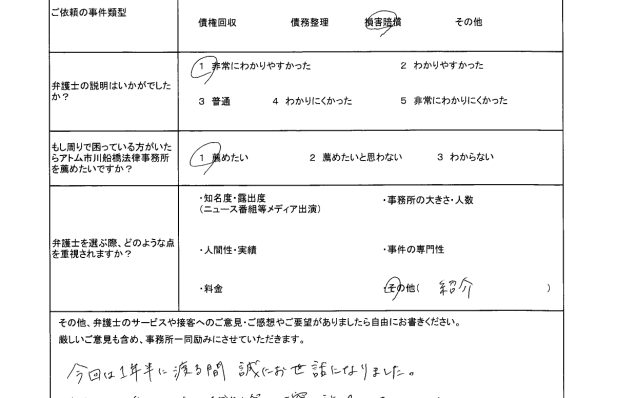 ご依頼の事件類型
債権回収 債務整理 損害賠償 その他
弁護士の説明はいかがでした
か？
1 非常にわかりやすかった 2 わかりやすかった
3 普通 4 わかりにくかった 5 非常にわかりにくかった
もし周りで困っている方がいた
らアトム市川船橋法律事務所
を薦めたいですか？
1 薦めたい 2 薦めたいと思わない 3 わからない
弁護士を選ぶ際、どのような点
を重視されますか？
・知名度・露出度
（ニュース番組等メディア出演）
・事務所の大きさ・人数
・人間性・実績 ・事件の専門性
・料金 ・その他（ 紹介 ）
その他、弁護士のサービスや接客へのご意見・ご感想やご要望がありましたら自由にお書きください。
厳しいご意見も含め、事務所一同励みにさせていただきます。
今回は1年半に渡る間 誠にお世話になりました。